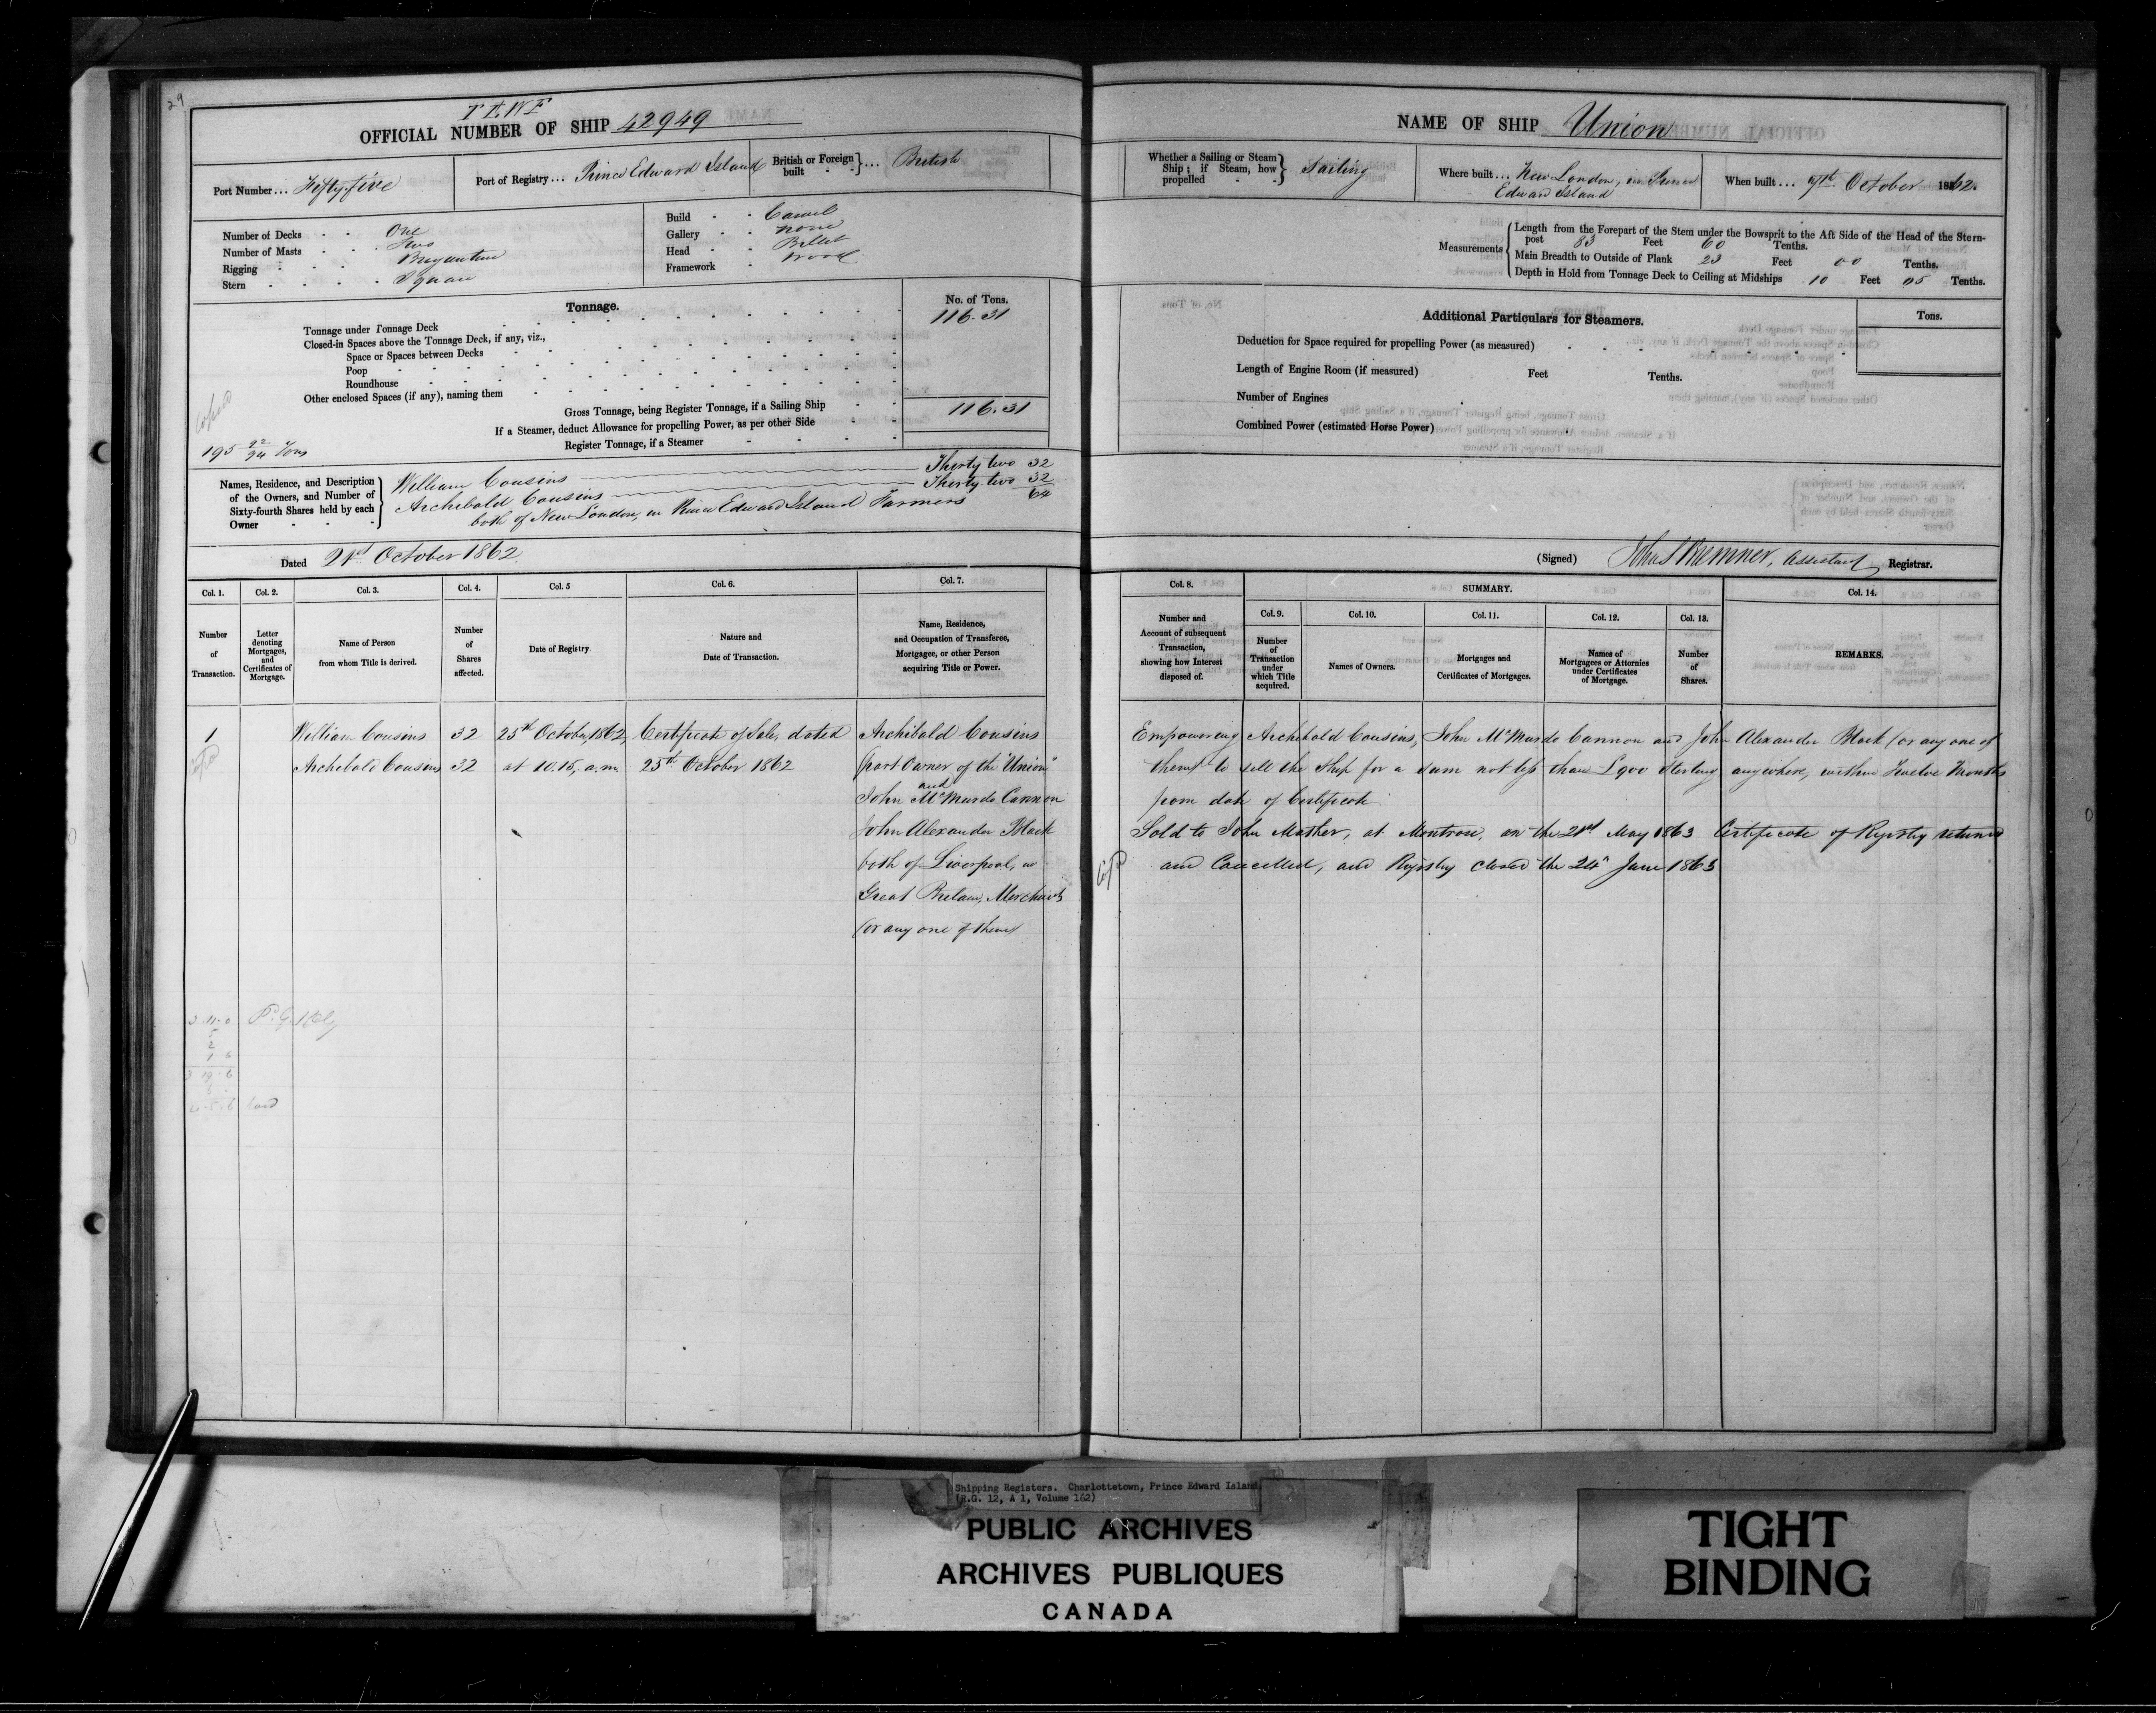 29
OFFICIAL NUMBER OF SHIP 42949
Port Number... Fifty five
Port of Registry... Prince Edward Island
British or Foreign built } ... British
Number of Decks One
Number of Masts Two
Rigging Brigantine
Stern Square
Build Carvel
Gallery none
Head Billet
Framework wood
Tonnage.
No. of Tons.
Tonnage under Tonnage Deck 116.31
Closed-in Spaces above the Tonnage Deck, if any, viz.,
Space or Spaces between Decks
Poop
Roundhouse
Other enclosed Spaces (if any), naming them
Gross Tonnage, being Register Tonnage, if a Sailing Ship 116.31
If a Steamer, deduct Allowance for propelling Power, as per other Side
Register Tonnage, if a Steamer
Copied
195 92/94 Tons
Names, Residence, and Description of the Owners, and Number of Sixty-fourth Shares held by each Owner
William Cousins Thirty two 32
Archibald Cousins Thirty two 32
64
both of New London, in Prince Edward Island Farmers
Dated 21st October 1862
Col. 1. Col. 2. Col. 3. Col. 4. Col. 5 Col. 6. Col. 7.
Number of Transaction.
Letter denoting Mortgages, and Certificates of Mortgage.
Name of Person from whom Title is derived.
Number of Shares affected.
Date of Registry
Nature and Date of Transaction.
Name, Residence, and Occupation of Transferee, Mortgagee, or other Person acquiring Title or Power.
1 William Cousins 32 25th October, 1862, Certificate of Sale, dated Archibald Cousins
Archibald Cousins 32 at 10.15, a.m. 25th October 1862 (part Owner of the "Union"
and
John McMurdo Cannon
John Alexander Black
both of Liverpool, in
Great Britain, Merchants
(or any one of them)
3 19 6
NAME OF SHIP Union
Whether a Sailing or Steam Ship; if Steam, how propelled } Sailing
Where built... New London, in Prince
Edward Island
When built... 7th October 1862.
Measurements
Length from the Forepart of the Stem under the Bowsprit to the Aft Side of the Head of the Stern-
post 83 Feet 60 Tenths.
Main Breadth to Outside of Plank 23 Feet 00 Tenths.
Depth in Hold from Tonnage Deck to Ceiling at Midships 10 Feet 05 Tenths.
Additional Particulars for Steamers.
Tons.
Deduction for Space required for propelling Power (as measured)
Length of Engine Room (if measured) Feet Tenths.
Number of Engines
Combined Power (estimated Horse Power)
(Signed) Assistant Registrar.
Col. 8. SUMMARY. Col. 14.
Col. 9. Col. 10. Col. 11. Col. 12. Col. 13.
Number and Account of subsequent Transaction, showing how Interest disposed of.
Number of Transaction under which Title acquired.
Names of Owners.
Mortgages and Certificates of Mortgages.
Names of Mortgagees or Attornies under Certificates of Mortgage.
Number of Shares.
REMARKS.
Empowering Archibald Cousins, John McMurdo Cannon and John Alexander Black (or any one of
them) to sell the Ship for a sum not less than £900 Sterling anywhere, within Twelve Months
from date of Certificate
Sold to John Mather, at Montrose, on the 21st May 1863 Certificate of Registry returned
and Cancelled, and Registry closed the 24th June 1863
Shipping Registers. Charlottetown, Prince Edward Island
(R.G. 12, A 1, Volume 162)
PUBLIC ARCHIVES
ARCHIVES PUBLIQUES
CANADA
TIGHT
BINDING